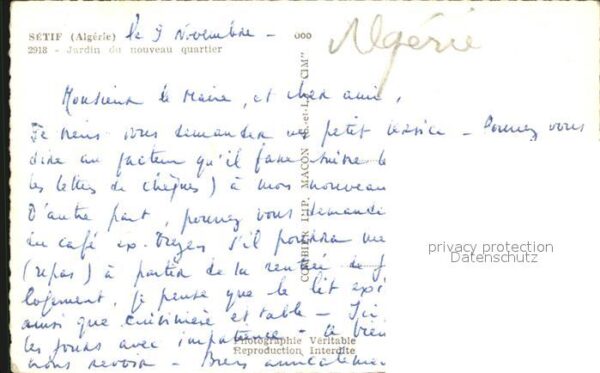 SÉTIF (Algérie) le 9 Novembre -
2918 - Jardin du nouveau quartier
Algérie
Monsieur le Maire, et cher ami,
Je viens vous demander un petit service - Pouvez vous
dire au facteur qu'il fasse suivre le
les lettres de chèques) à mon nouveau
D'autre part, pouvez vous demande
au café ex. s'il pourra me
(repas) à partir de la rentrée de
logement, je pense que le lit exi
ainsi que cuisinière et table - Ici,
les jours avec impatience - de bien
nous revoir - Bien amicalemen
COMBIER IMP. MACON (S.-et-L.) "CIM"
Photographie Véritable
Reproduction Interdite
privacy protection
Datenschutz